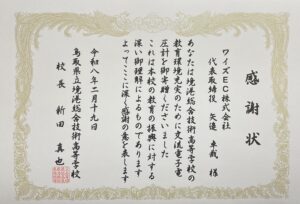 感謝状
ワイズEC株式会社
代表取締役 矢邊 卓哉 様
あなたは境港総合技術高等学校の
教育環境充実のために交流電子電
圧計を御寄贈くださいました
これは本校の教育の振興に対する
深い御理解によるものであります
よってここに深く感謝の意を表します
令和八年二月十九日
鳥取県立境港総合技術高等学校
校長 新田 真也